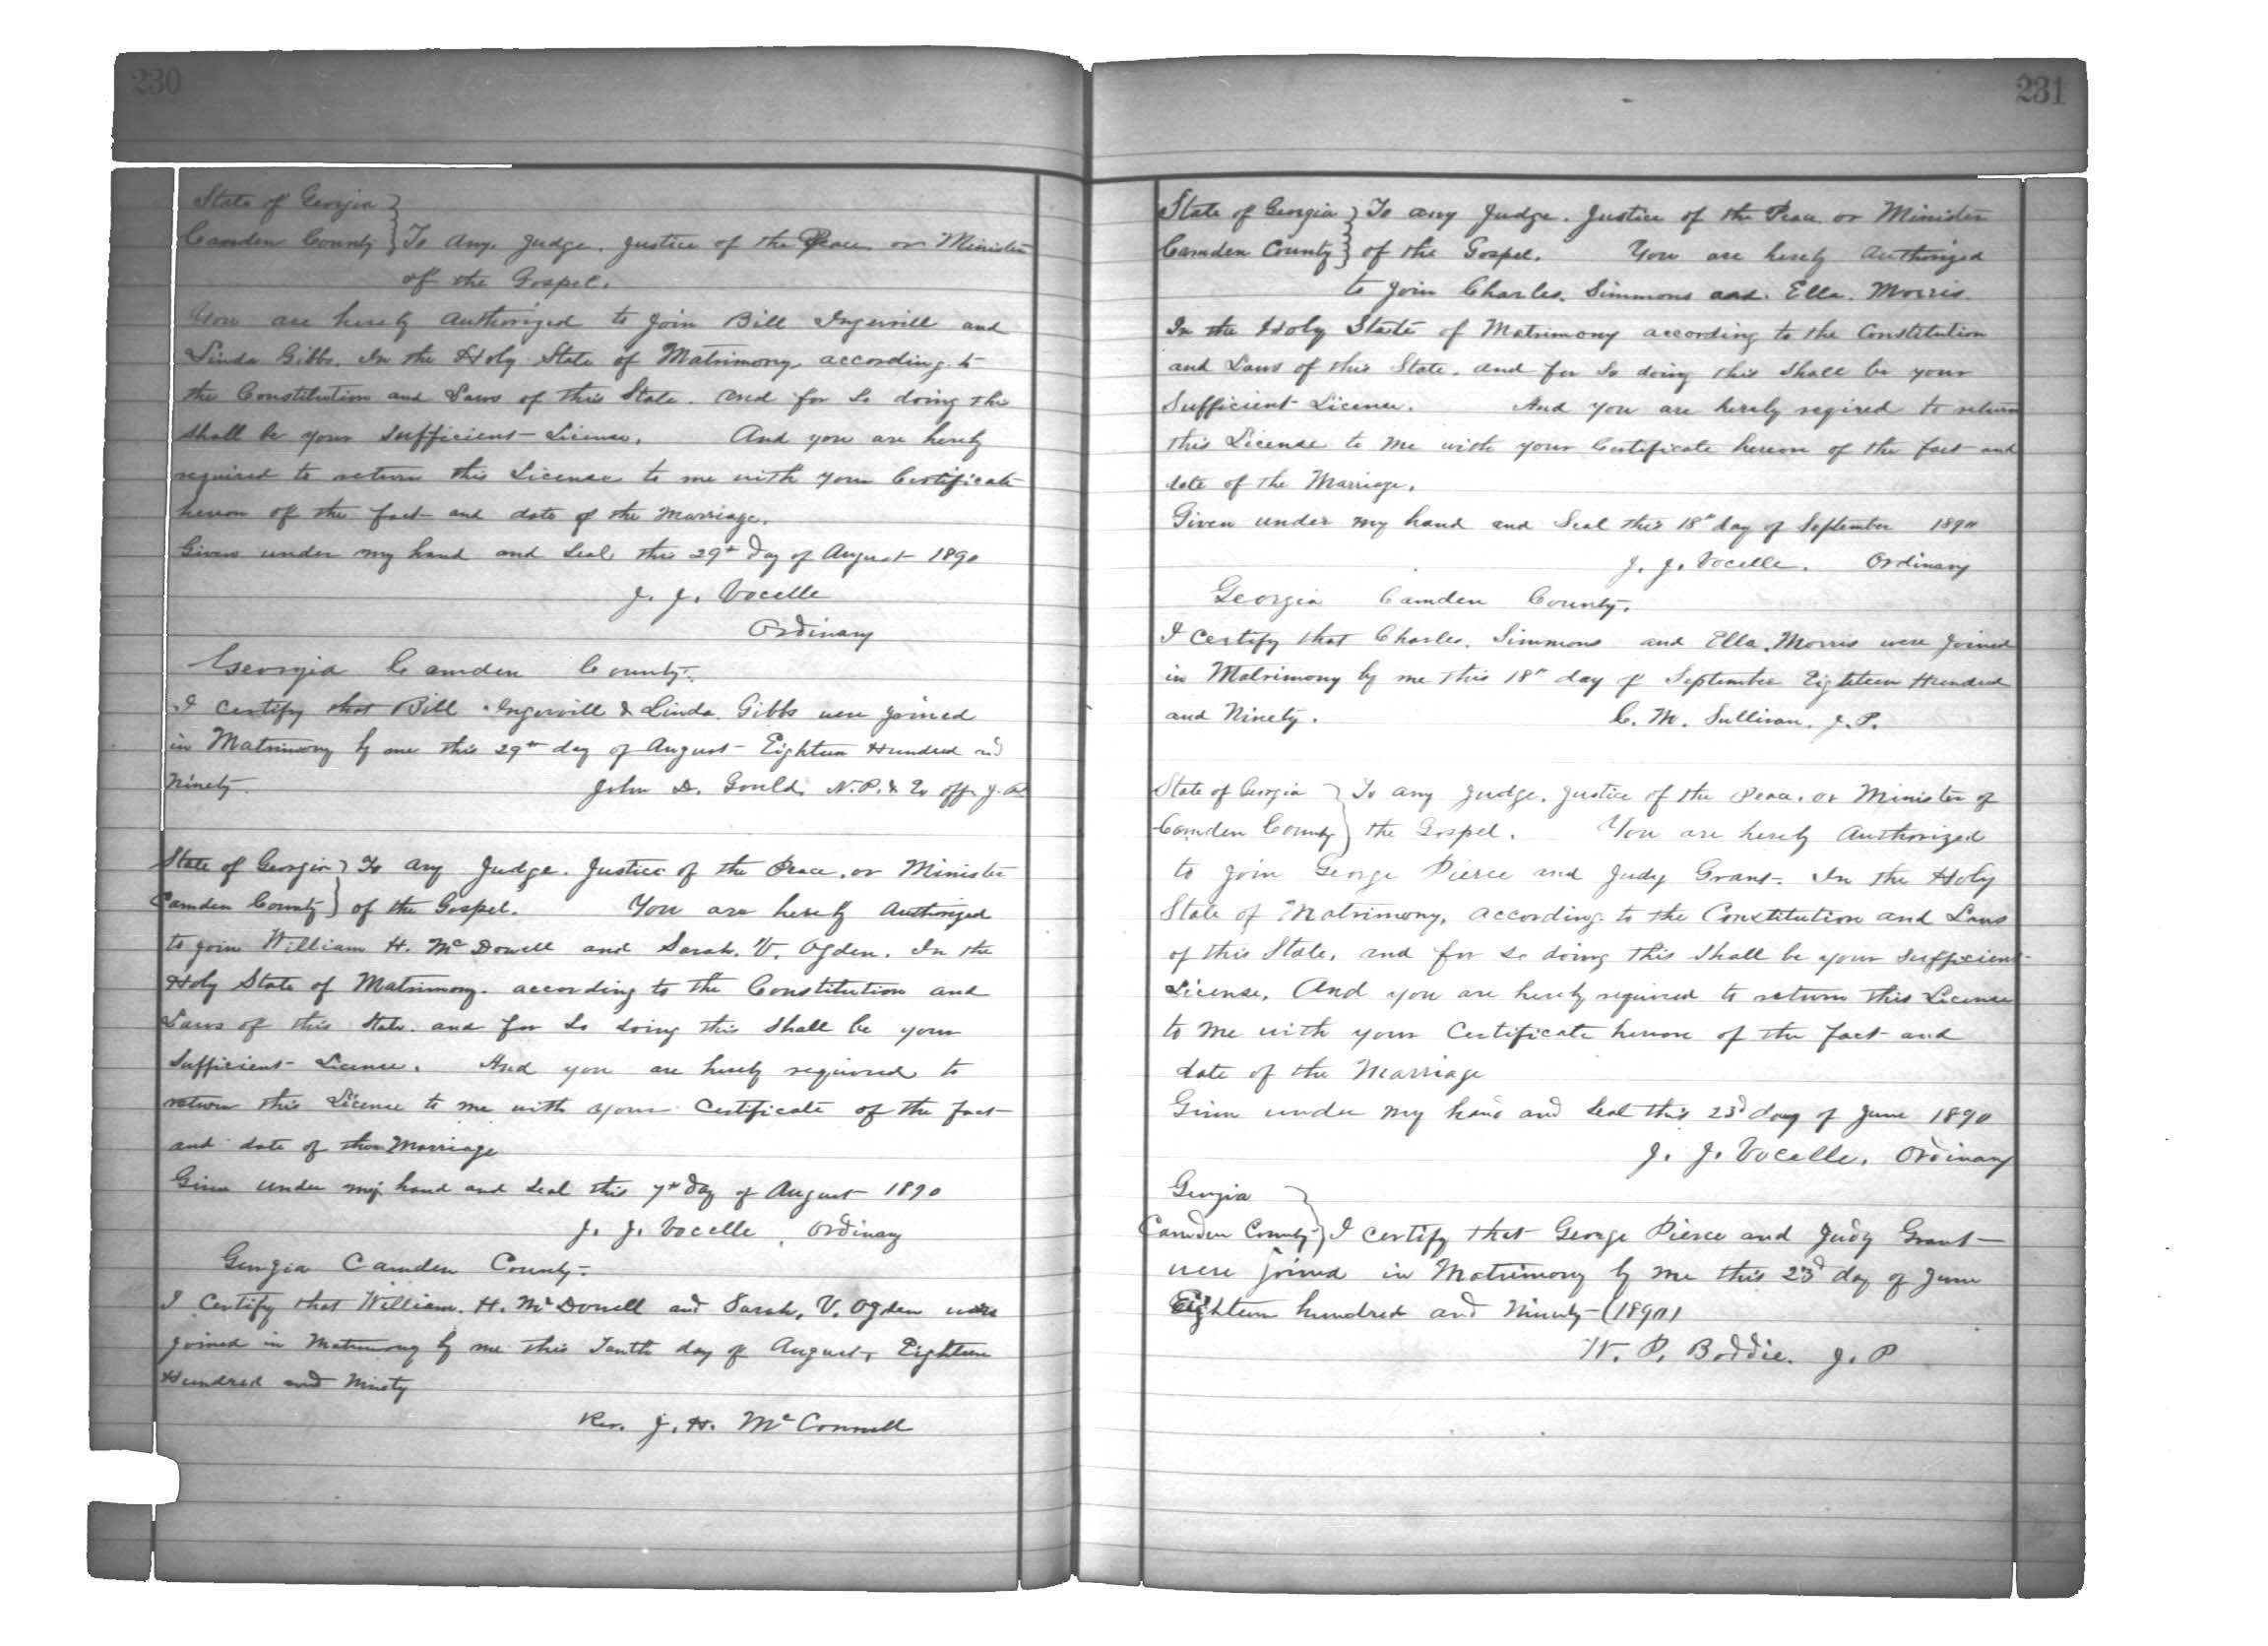 230
State of Georgia }
Camden County } To any Judge. Justice of the Peace or Minister
of the Gospel.
You are hereby authorized to join Bill Ingervill and
Linda Gibbs. In the Holy State of Matrimony, according to
the Constitution and Laws of this State. and for so doing this
shall be your sufficient License. And you are hereby
required to return this License to me with your Certificate
hereon of the fact and date of the Marriage.
Given under my hand and seal this 29th day of August 1890
J. J. Vocelle
Ordinary
Georgia Camden County.
I certify that Bill Ingervill & Linda Gibbs were joined
in Matrimony by me this 29th day of August Eighteen Hundred and
Ninety. John D. Gould. N.P. & Ex off. J.P.
State of Georgia } To any Judge. Justice of the Peace. or Minister
Camden County } of the Gospel. You are hereby Authorized
to join William H. McDowell and Sarah. V. Ogden. In the
Holy State of Matrimony. according to the Constitution and
Laws of this State. and for so doing this shall be your
sufficient License. And you are hereby required to
return this License to me with your Certificate of the fact
and date of the Marriage
Given under my hand and seal this 7th day of August 1890
J. J. Vocelle, Ordinary
Georgia Camden County.
I Certify that William. H. McDowell and Sarah, V. Ogden were
joined in Matrimony by me this Tenth day of August, Eighteen
Hundred and Ninety
Rev. J. H. McConnell
231
State of Georgia } To any Judge. Justice of the Peace or Minister
Camden County } of the Gospel. You are hereby Authorized
to join Charles. Simmons and. Ella. Morris.
In the Holy State of Matrimony according to the Constitution
and Laws of this State. and for so doing this shall be your
Sufficient License. And you are hereby regired to return
this License to me with your Certificate hereon of the fact and
date of the Marriage.
Given under my hand and Seal this 18th day of September 1890
J. J. Vocelle. Ordinary
Georgia Camden County.
I certify that Charles. Simmons and Ella. Morris were joined
in Matrimony by me this 18th day of September Eighteen Hundred
and Ninety. C. M. Sullivan. J.P.
State of Georgia } To any Judge. Justice of the Peace. or Minister of
Camden County } the Gospel. You are hereby Authorized
to join George Pierce and Judy Grant. In the Holy
State of Matrimony, according to the Constitution and Laws
of this State, and for so doing this shall be your sufficient
License, And you are hereby required to return this License
to me with your Certificate hereon of the fact and
date of the Marriage
Given under my hand and seal this 23d day of June 1890
J. J. Vocelle, Ordinary
Georgia }
Camden County } I certify that George Pierce and Judy Grant
were joined in Matrimony by me this 23d day of June
Eighteen hundred and Ninety (1890)
W. P. Boddie. J. P